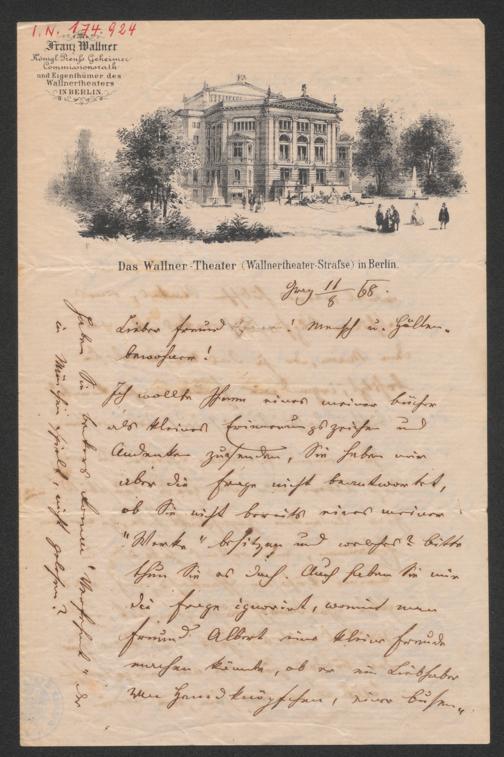 I. N. 174.924
Franz Wallner
Königl. Preuß. Geheimer
Commissionsrath
und Eigenthümer des
Wallnertheaters
IN BERLIN.
Das Wallner-Theater (Wallnertheater-Straße) in Berlin.
11/8 68.
Lieber Freund ! Mensch u. Hütten-
bewohner!
Ich wollte Ihnen eines meiner Bücher
als kleines Erinnerungszeichen und
Andenken zusenden, Sie haben mir
aber die Frage nicht beantwortet,
ob Sie nicht bereits eines meiner
"Werke" besitzen und welches? bitte
thun Sie es doch. Auch haben Sie mir
die Frage ignorirt, womit man
Freund Albert eine kleine Freude
machen könnte, ob er ein Liebhaber
von Hemdknöpfchen, einer Busen-
Haben Sie der
in München spielt, nicht gelesen?